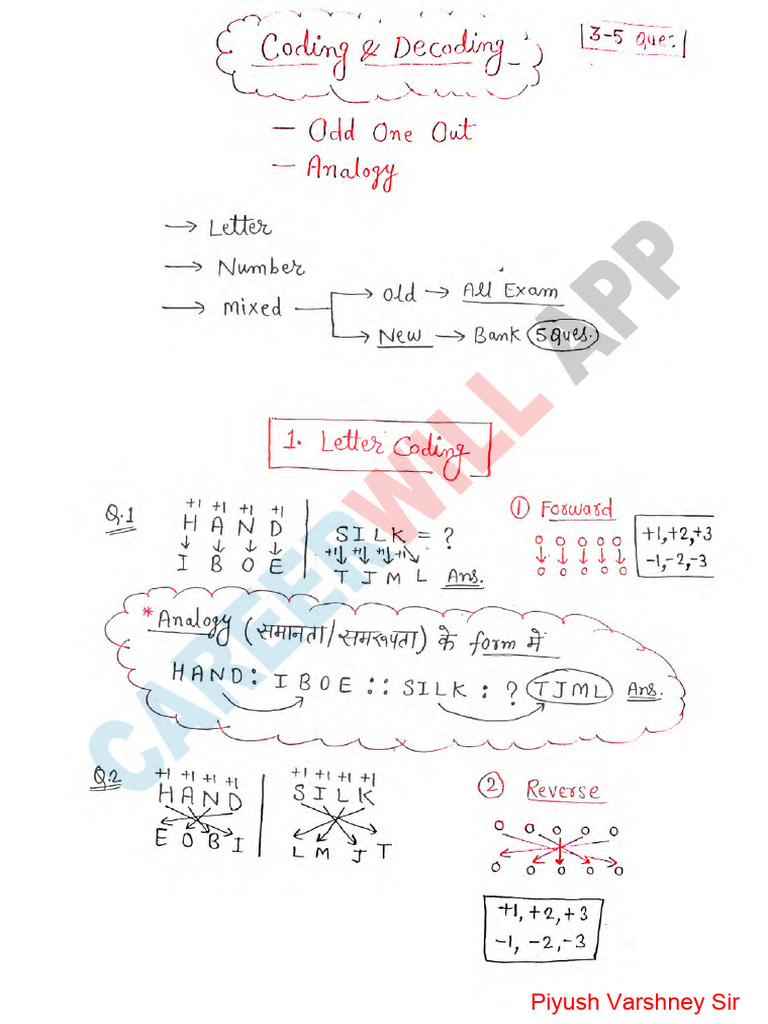 Coding & Decoding
3-5 ques
— Odd One Out
— Analogy
→ Letter
→ Number
→ mixed
→ Old → All Exam
→ New → Bank 5Ques.
CAREERWILL APP
1. Letter Coding
Q.1
+1 +1 +1 +1
H A N D
↓ ↓ ↓ ↓
I B O E
SILK = ?
+1↓ +1↓ +1↓ +1↘
T J M L Ans.
① Forward
o o o o o
↓ ↓ ↓ ↓ ↓
o o o o o
+1,+2,+3
-1,-2,-3
* Analogy (समानता/समरूपता) के form में
HAND : IBOE :: SILK : ? TJML Ans.
Q.2
+1 +1 +1 +1
H A N D
E O B I
+1 +1 +1 +1
S I L K
L M J T
② Reverse
o o o o o
o o o o o
+1,+2,+3
-1, -2,-3
Piyush Varshney Sir